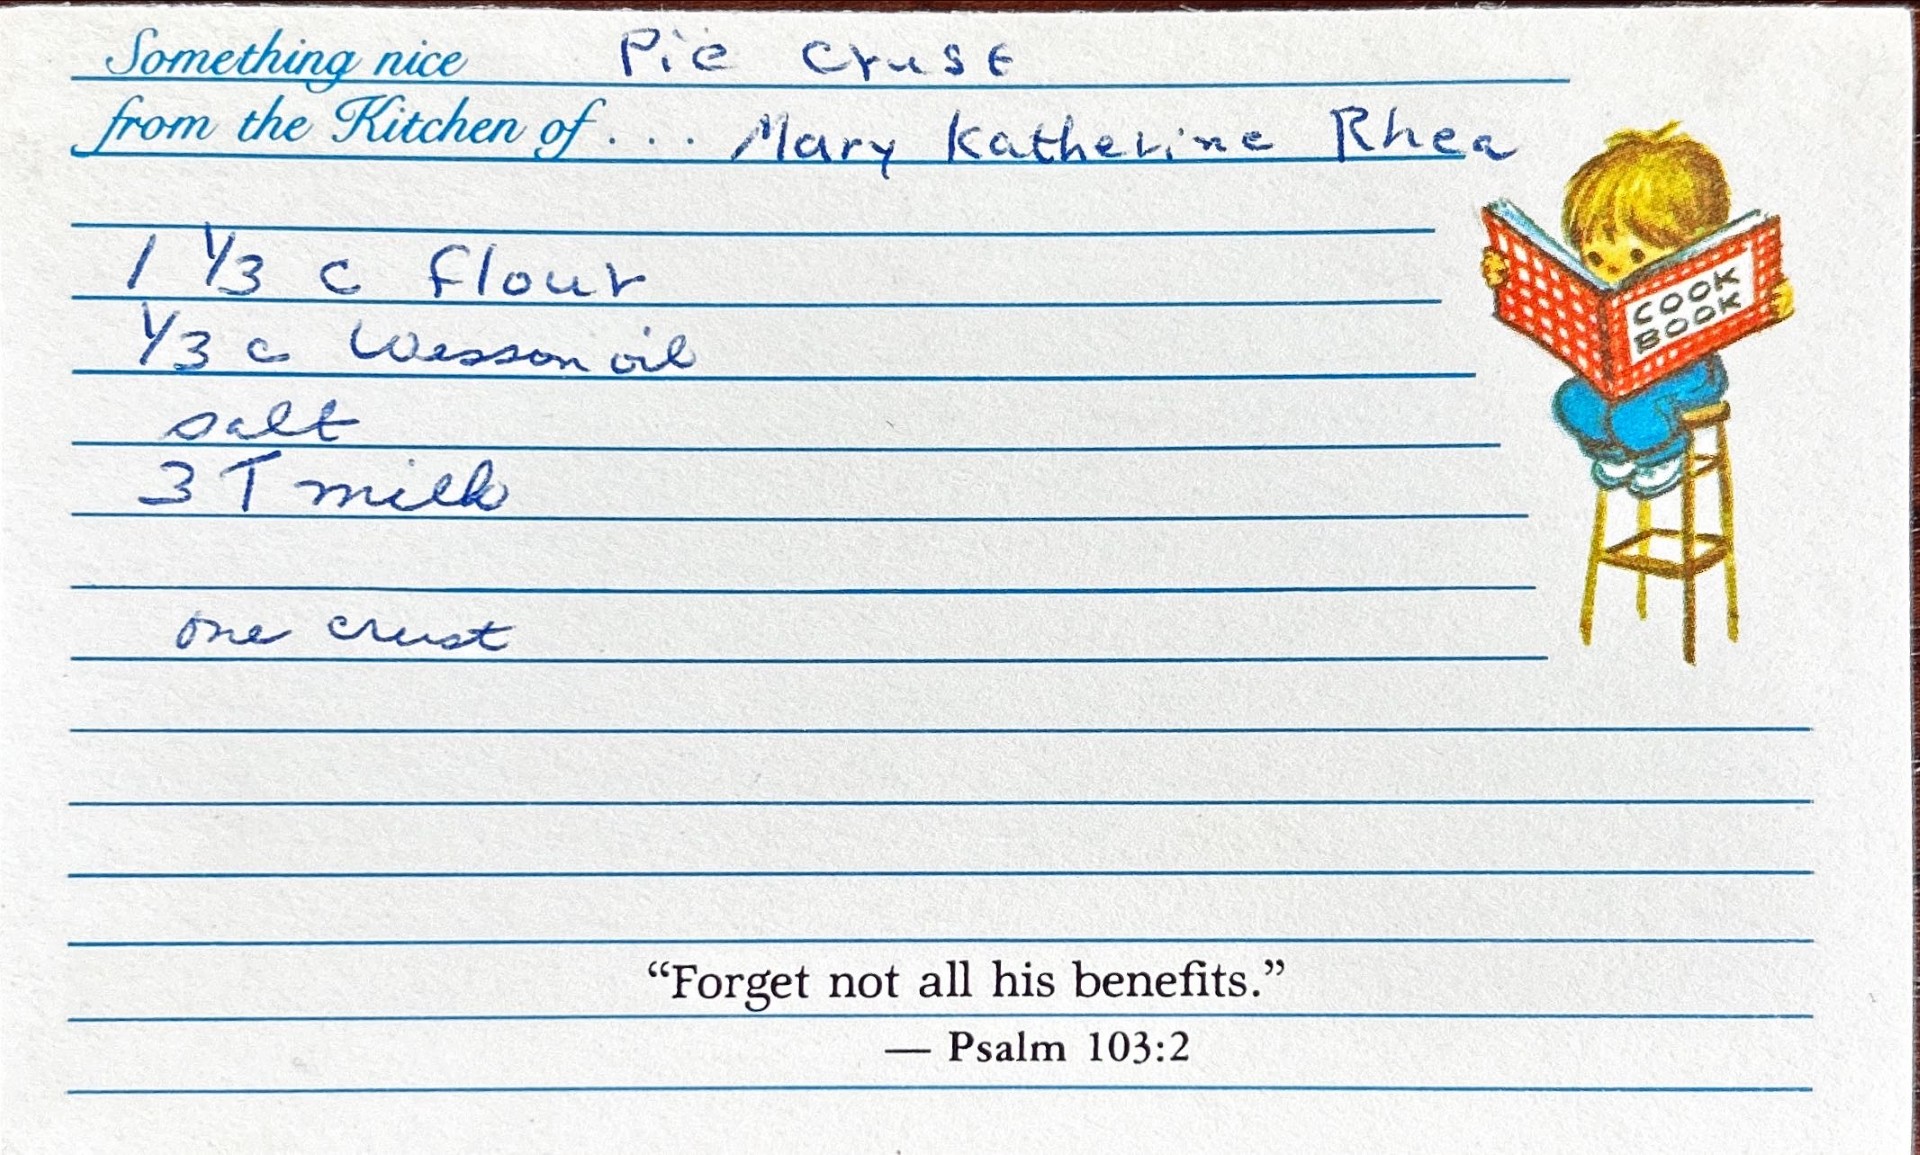 Something nice Pie Crust
from the Kitchen of . . . Mary Katherine Rhea
1 1/3 c flour
1/3 c Wesson oil
salt
3 T milk
one crust
COOK
BOOK
“Forget not all his benefits.”
— Psalm 103:2